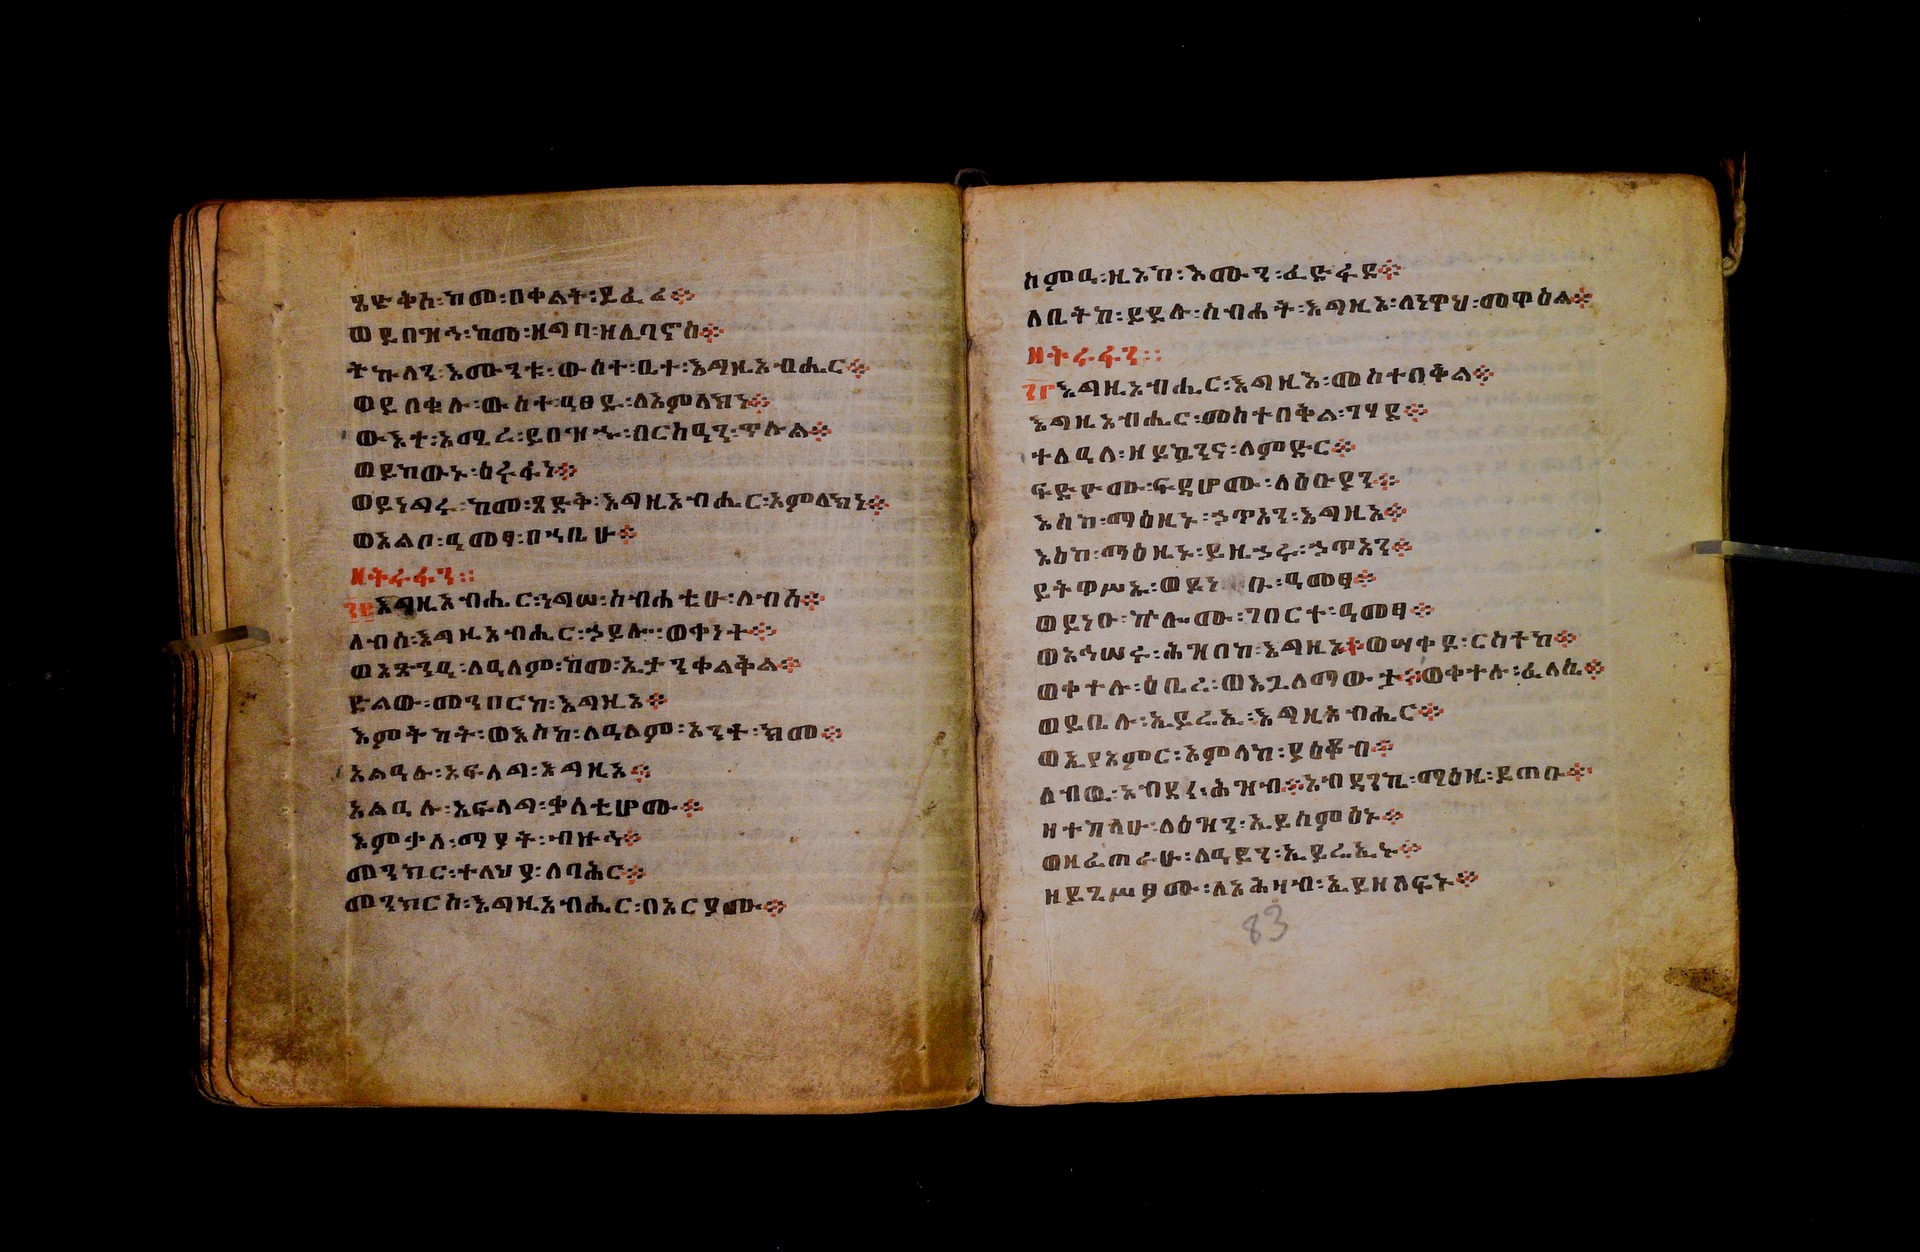 ጻድቅሰ፡ከመ፡በቀልት፡ይፈሪ፨
ወይበዝኅ፡ከመ፡ዘግባ፡ዘሊባኖስ፨
ትኩላን፡እሙንቱ፡ውስተ፡ቤተ፡እግዚአብሔር፨
ወይበቁሉ፡ውስተ፡ዓፀዱ፡ለአምላክነ፨
ውእተ፡አሚረ፡ይበዝኁ፡በርስዓን፡ጥሉል፨
ወይከውኑ፡ዕሩፋነ፨
ወይነግሩ፡ከመ፡ጻድቅ፡እግዚአብሔር፡አምላክነ፨
ወአልቦ፡ዓመፃ፡በኀቤሁ፨
ዘትሩፋን፡፡
፺፪እግዚአብሔር፡ነግሠ፡ስብሐቲሁ፡ለብሰ፨
ለብሰ፡እግዚአብሔር፡ኃይሎ፡ወቀነተ፨
ወአጽንዓ፡ለዓለም፡ከመ፡ኢታንቀልቅል፨
ድልው፡መንበርከ፡እግዚኦ፨
እምትካት፡ወእስከ፡ለዓለም፡አንተ፡ክመ፨
አልዓሉ፡አፍላግ፡እግዚኦ፨
አልዓሉ፡አፍላግ፡ቃላቲሆሙ፨
እምቃለ፡ማያት፡ብዙኅ፨
መንክር፡ተላህያ፡ለባሕር፨
መንክርሰ፡እግዚአብሔር፡በአርያሙ፨
ስምዓ፡ዚአከ፡እሙን፡ፈድፋደ፨
ለቤትከ፡ይደሉ፡ስብሐት፡እግዚኦ፡ለነዋህ፡መዋዕል፨
ዘትሩፋን፡፡
፺፫እግዚአብሔር፡እግዚእ፡መስተበቅል፨
እግዚአብሔር፡መስተበቅል፡ገሃደ፨
ተለዓለ፡ዘይኴንና፡ለምድር፨
ፍድዮሙ፡ፍዳሆሙ፡ለዕቡያን፨
እስከ፡ማዕዜኑ፡ኃጥአን፡እግዚኦ፨
እስከ፡ማዕዜኑ፡ይዜኃሩ፡ኃጥአን፨
ይትዋሥኡ፡ወይነቡ፡ዓመፃ፨
ወይነቡ፡ኵሎሙ፡ገበርተ፡ዓመፃ፨
ወአኅሠሩ፡ሕዝበከ፡እግዚኦ፨ወሣቀዩ፡ርስተከ፨
ወቀተሉ፡ዕቤረ፡ወእጓለማውታ፨ወቀተሉ፡ፈላሴ፨
ወይቤሉ፡ኢይሬኢ፡እግዚአብሔር፨
ወኢየአምር፡አምላከ፡ያዕቆብ፨
ለብዉ፡አብዳነ፡ሕዝብ፨አብዳንኪ፡ማዕዜ፡ይጠቡ፨
ዘተከላሁ፡ለዕዝን፡ኢይሰምዕኑ፨
ወዘፈጠራሁ፡ለዓይን፡ኢይሬኢኑ፨
ዘይጌሥፆሙ፡ለአሕዛብ፡ኢይዘልፍኑ፨
83